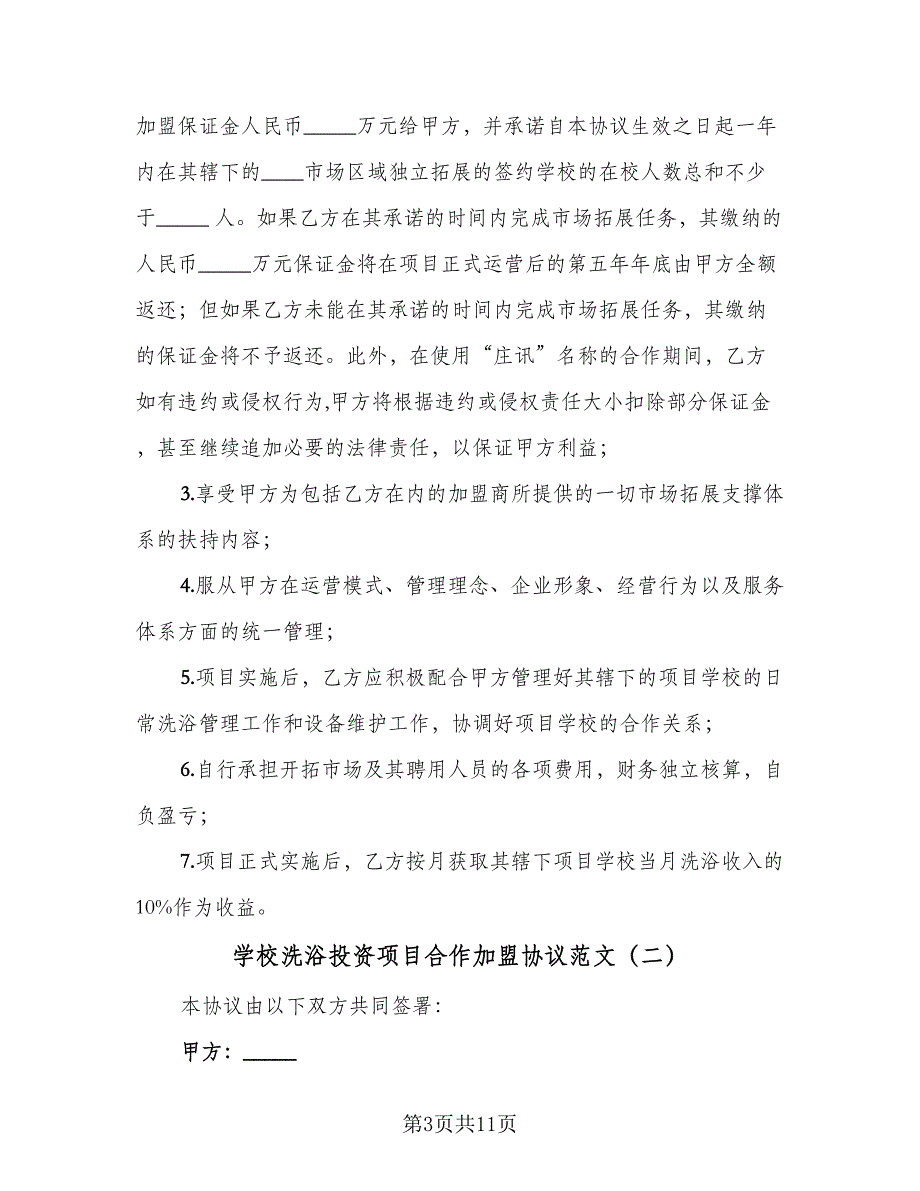 加盟保证金人民币_____万元给甲方，并承诺自本协议生效之日起一年
内在其辖下的____市场区域独立拓展的签约学校的在校人数总和不少
于_____ 人。如果乙方在其承诺的时间内完成市场拓展任务，其缴纳的
人民币_____万元保证金将在项目正式运营后的第五年年底由甲方全额
返还；但如果乙方未能在其承诺的时间内完成市场拓展任务，其缴纳
的保证金将不予返还。此外，在使用“庄讯”名称的合作期间，乙方
如有违约或侵权行为,甲方将根据违约或侵权责任大小扣除部分保证金
，甚至继续追加必要的法律责任，以保证甲方利益；
3.享受甲方为包括乙方在内的加盟商所提供的一切市场拓展支撑体
系的扶持内容；
4.服从甲方在运营模式、管理理念、企业形象、经营行为以及服务
体系方面的统一管理；
5.项目实施后，乙方应积极配合甲方管理好其辖下的项目学校的日
常洗浴管理工作和设备维护工作，协调好项目学校的合作关系；
6.自行承担开拓市场及其聘用人员的各项费用，财务独立核算，自
负盈亏；
7.项目正式实施后，乙方按月获取其辖下项目学校当月洗浴收入的
10%作为收益。
学校洗浴投资项目合作加盟协议范文（二）
本协议由以下双方共同签署：
甲方：_____
第3页共11页